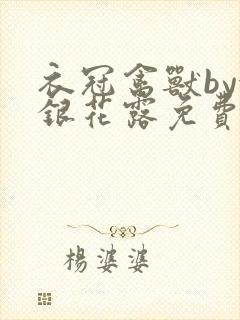 衣冠禽獸by
銀花露免費
楊婆婆